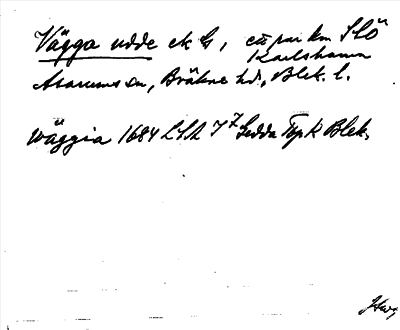 Vägga udde ek bl, ett par km SSÖ
Karlshamn
Asarums sn, Bräkne hd, Blek. l.
Wäggia 1684 LSA I 7 Gedda Top k Blek.